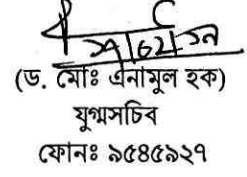 (ড. মোঃ এনামুল হক)
যুগ্মসচিব
ফোনঃ ৯৫৪৫৯২৭